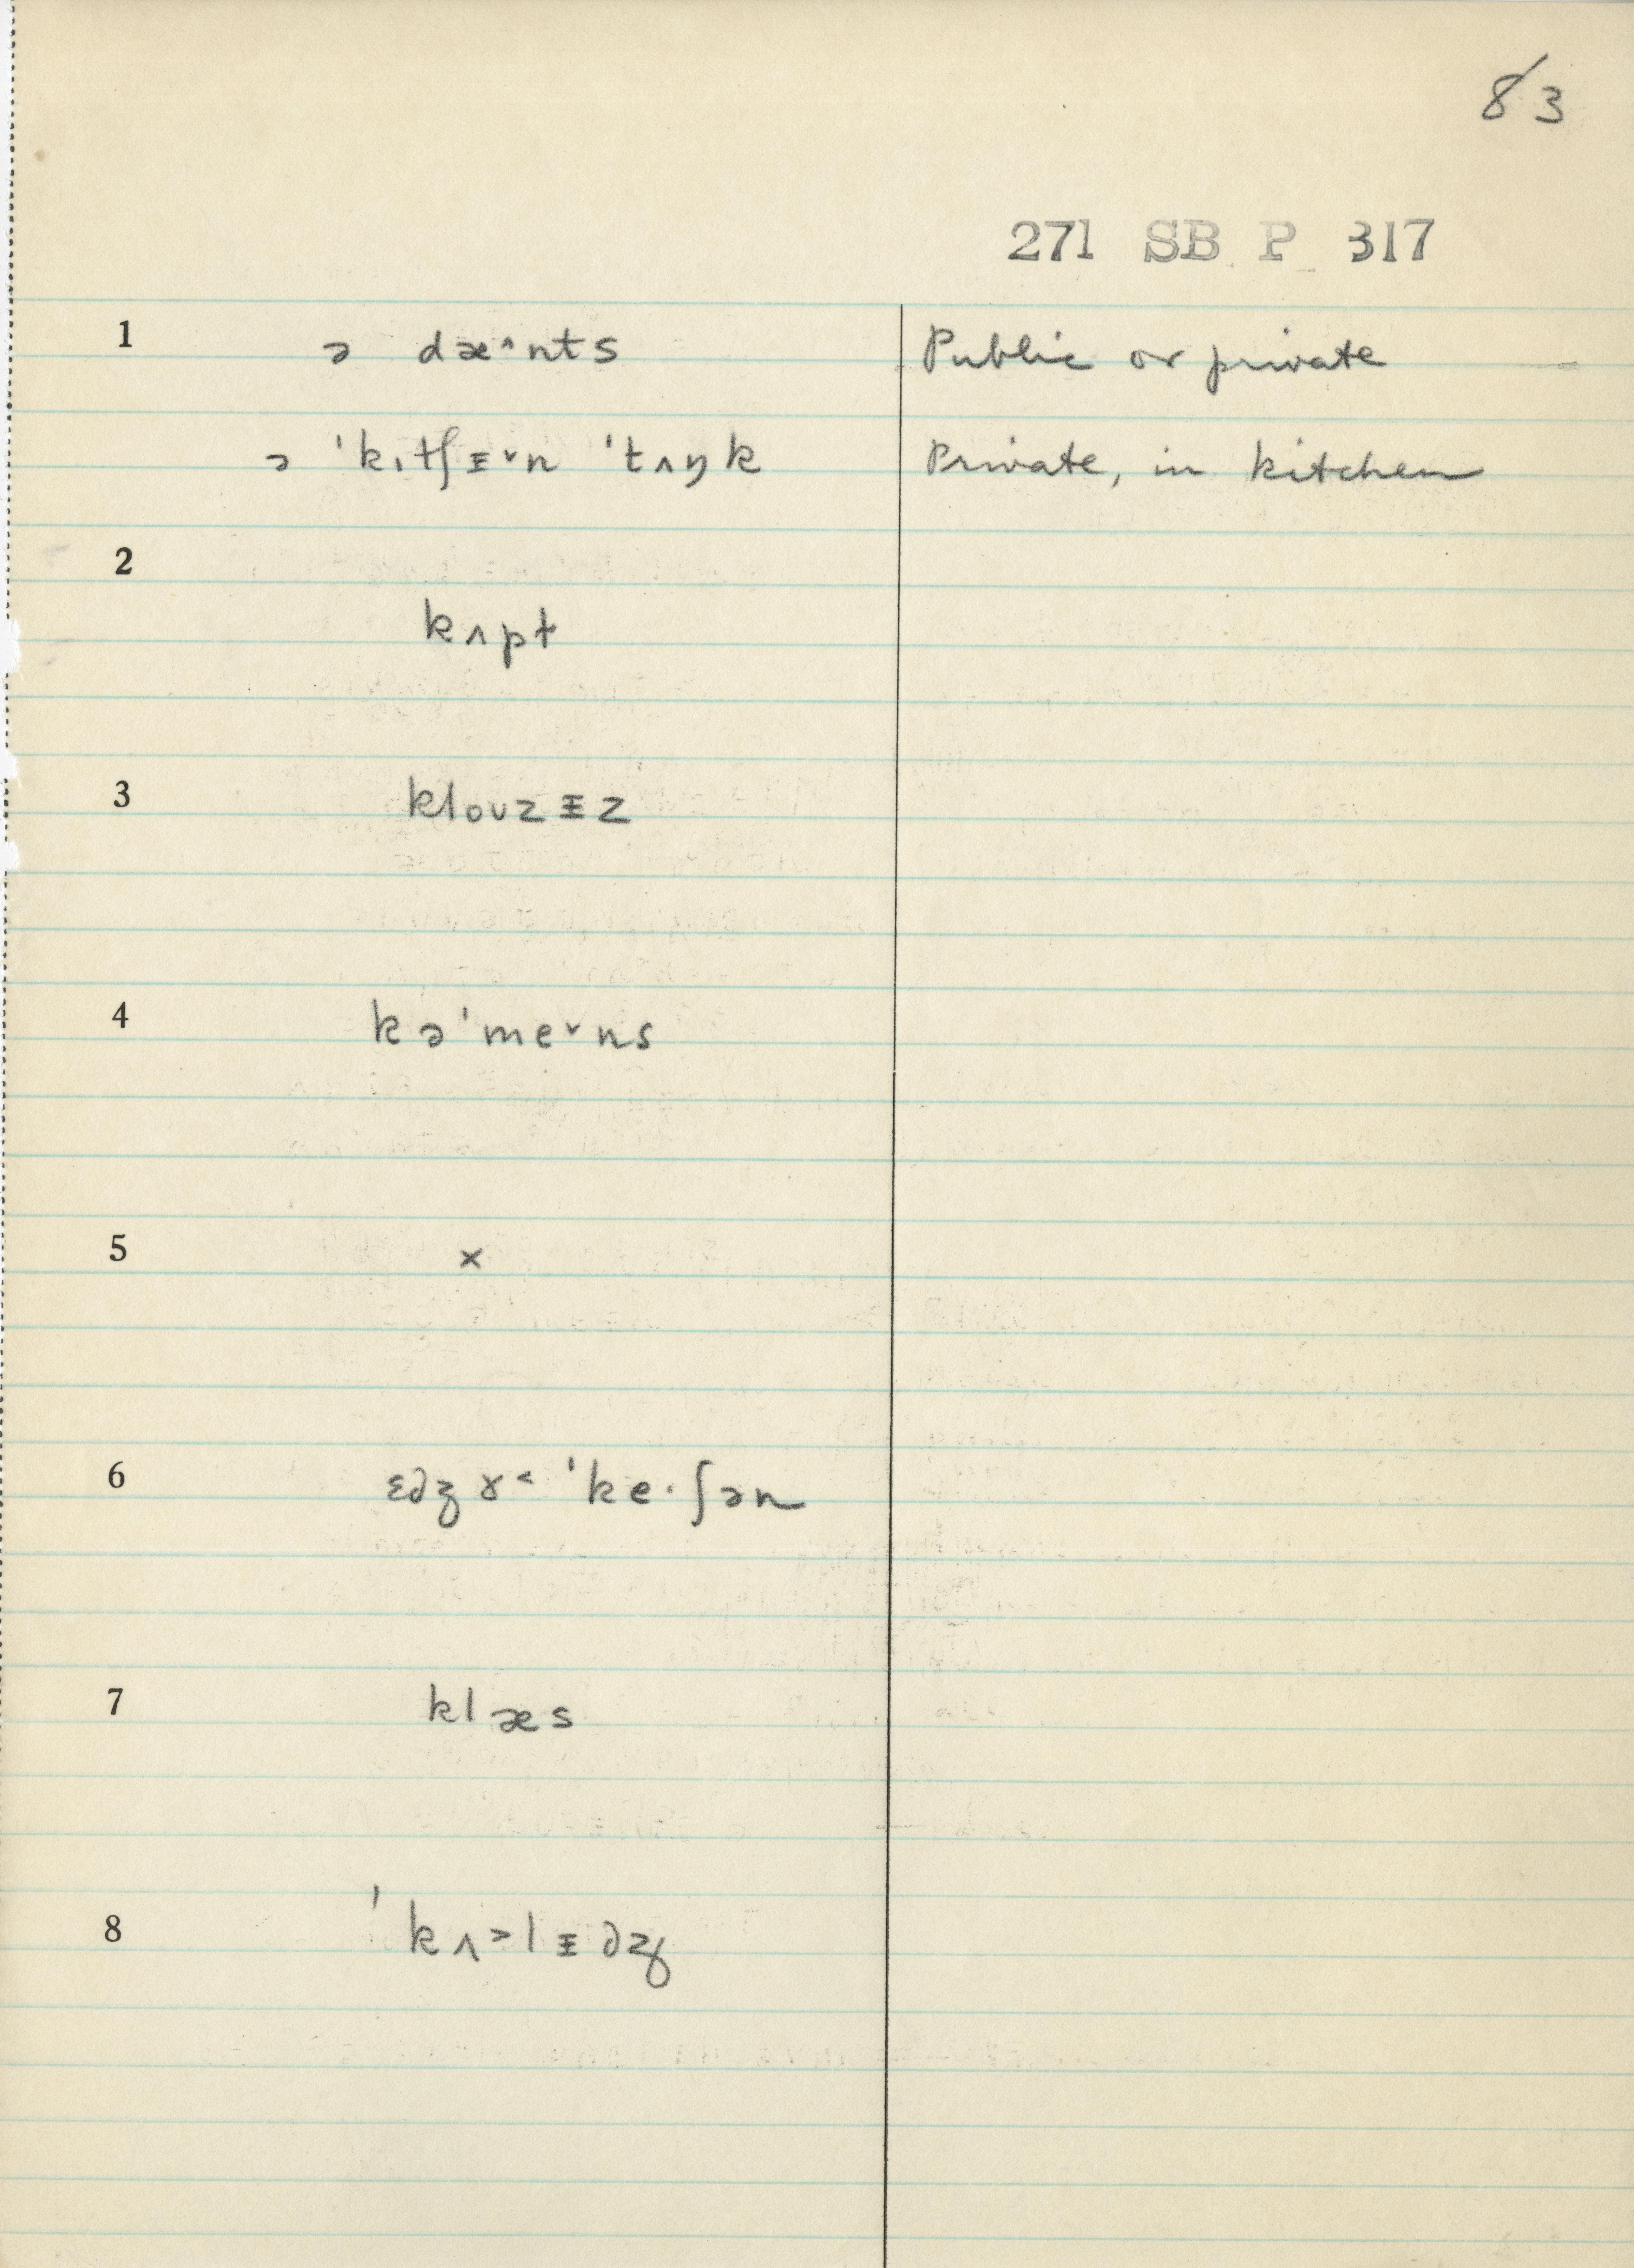 83
271 SB P 317
1 ə dæ^nts Public or private
ə ˈkɪtʃᵻ˅n ˈtʌŋk Private, in kitchen
2
kʌpt
3 kloʊzᵻz
4 kəˈme˅ns
5 x
6 ɛdʒɤ˂ ˈke·ʃən
7 klæs
8 ˈkʌ˃lᵻdʒ